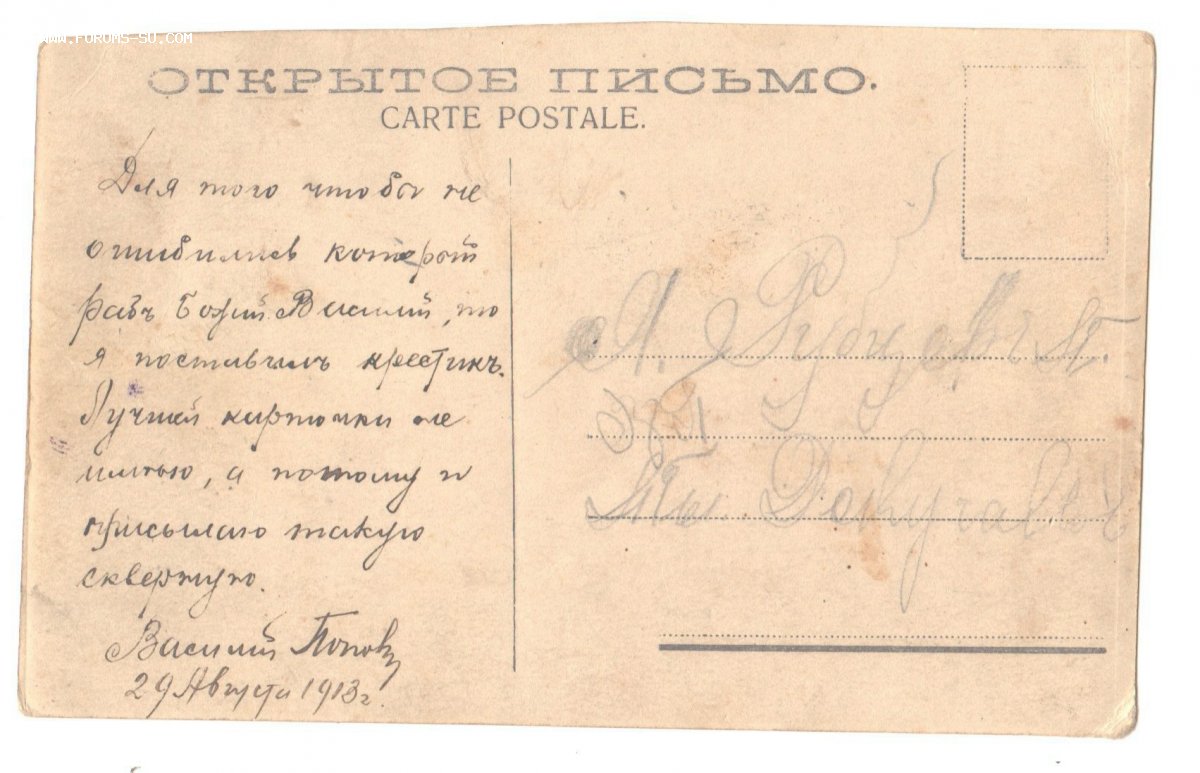 WWW.FORUMS-SU.COM
ОТКРЫТОЕ ПИСЬМО.
CARTE POSTALE.
Для того чтобы не
ошибились который
рабъ Божій Василій, то
я поставилъ крестикъ.
Лучшей карточки не
имѣю, а потому и
присылаю такую
скверную.
Василій Поповъ
29 Августа 1913 г.
А.